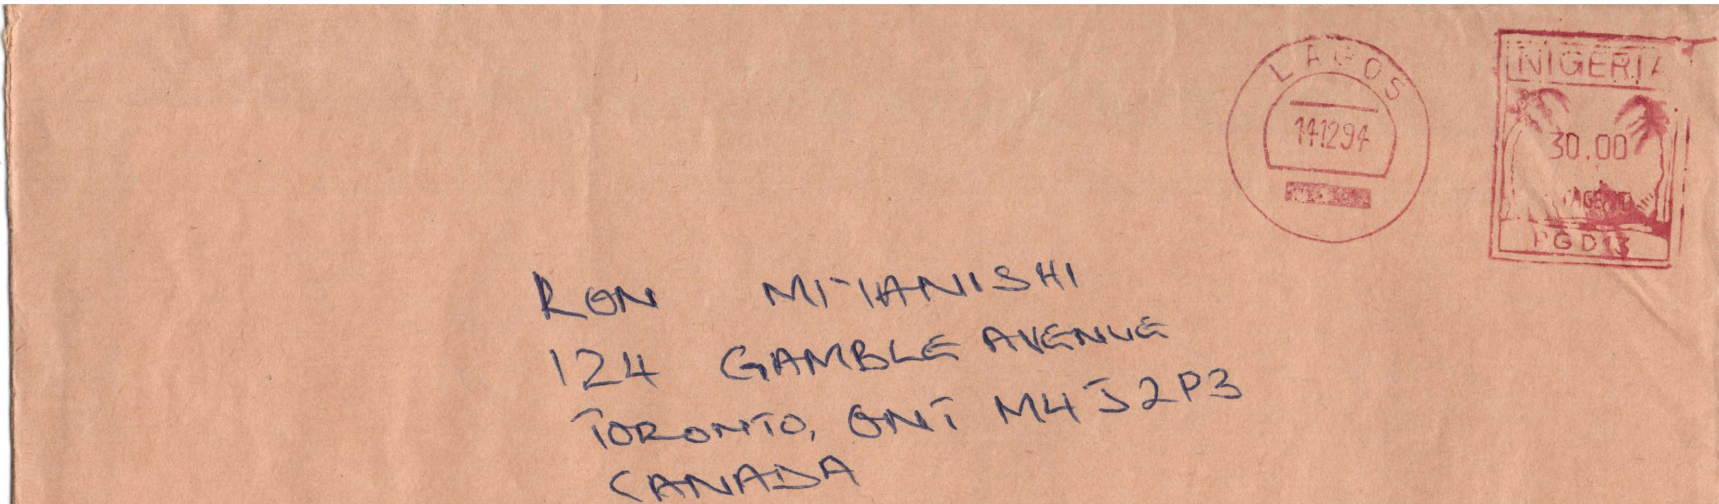 LAGOS
141294
NIGERIA
30.00
PGD13
RON MITANISHI
124 GAMBLE AVENUE
TORONTO, ONT M4J2P3
CANADA